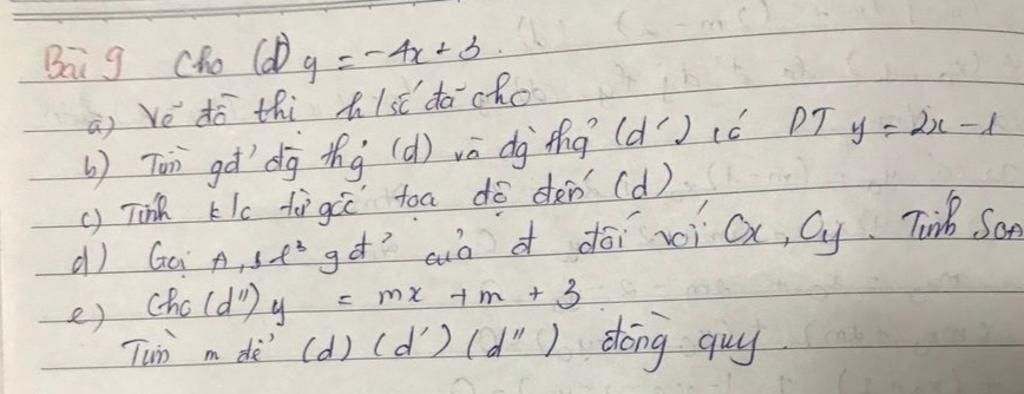 Bài 9 Cho (d) y = -4x + 3.
a) Vẽ đồ thị h/số đã cho
b) Tìm gđ' đg thg (d) và đg thg (d') có PT y = 2x - 1
c) Tính k/c từ gốc tọa độ đến (d)
d) Gọi A, gđ' của d đối với Ox, Oy. Tính
e) Cho (d") y = mx + m + 3
Tìm m để (d) (d') (d") đồng quy.